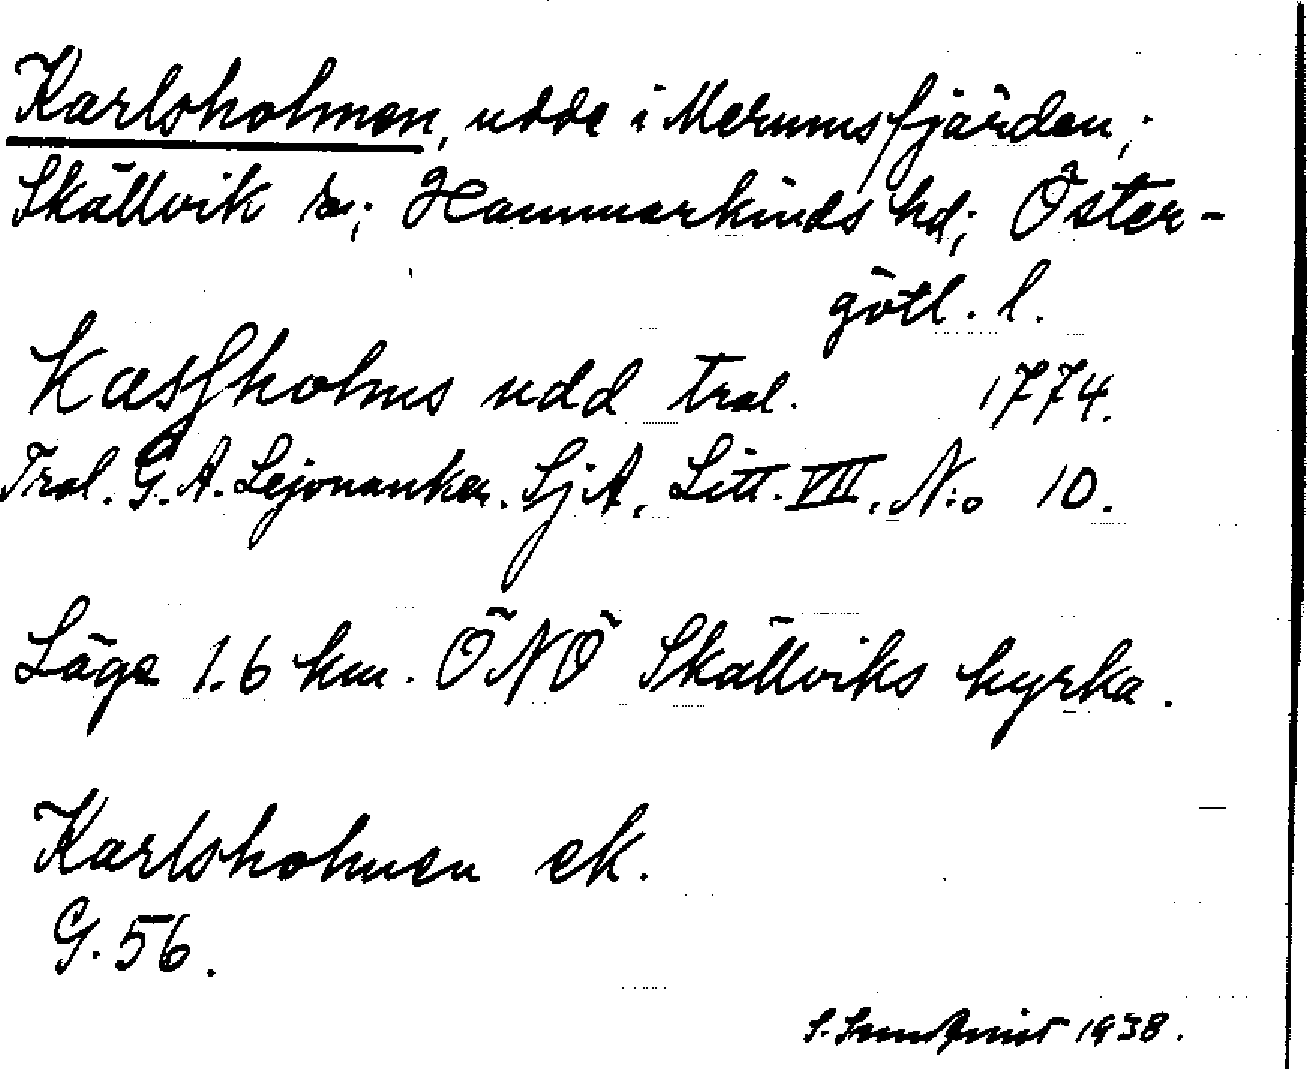 Karlsholmen, udde i Merumsfjärden;
Skällvik sn; Hammarkinds hd; Öster-
götl. l.
Kassholms udd tral. 1774.
Tral. G. A. Lejonanker. SjA, Litt. VII, N:o 10.
Läge 1.6 km. ÖNÖ Skällviks kyrka.
Karlsholmen ek.
G. 56.
S. Sundqvist 1938.